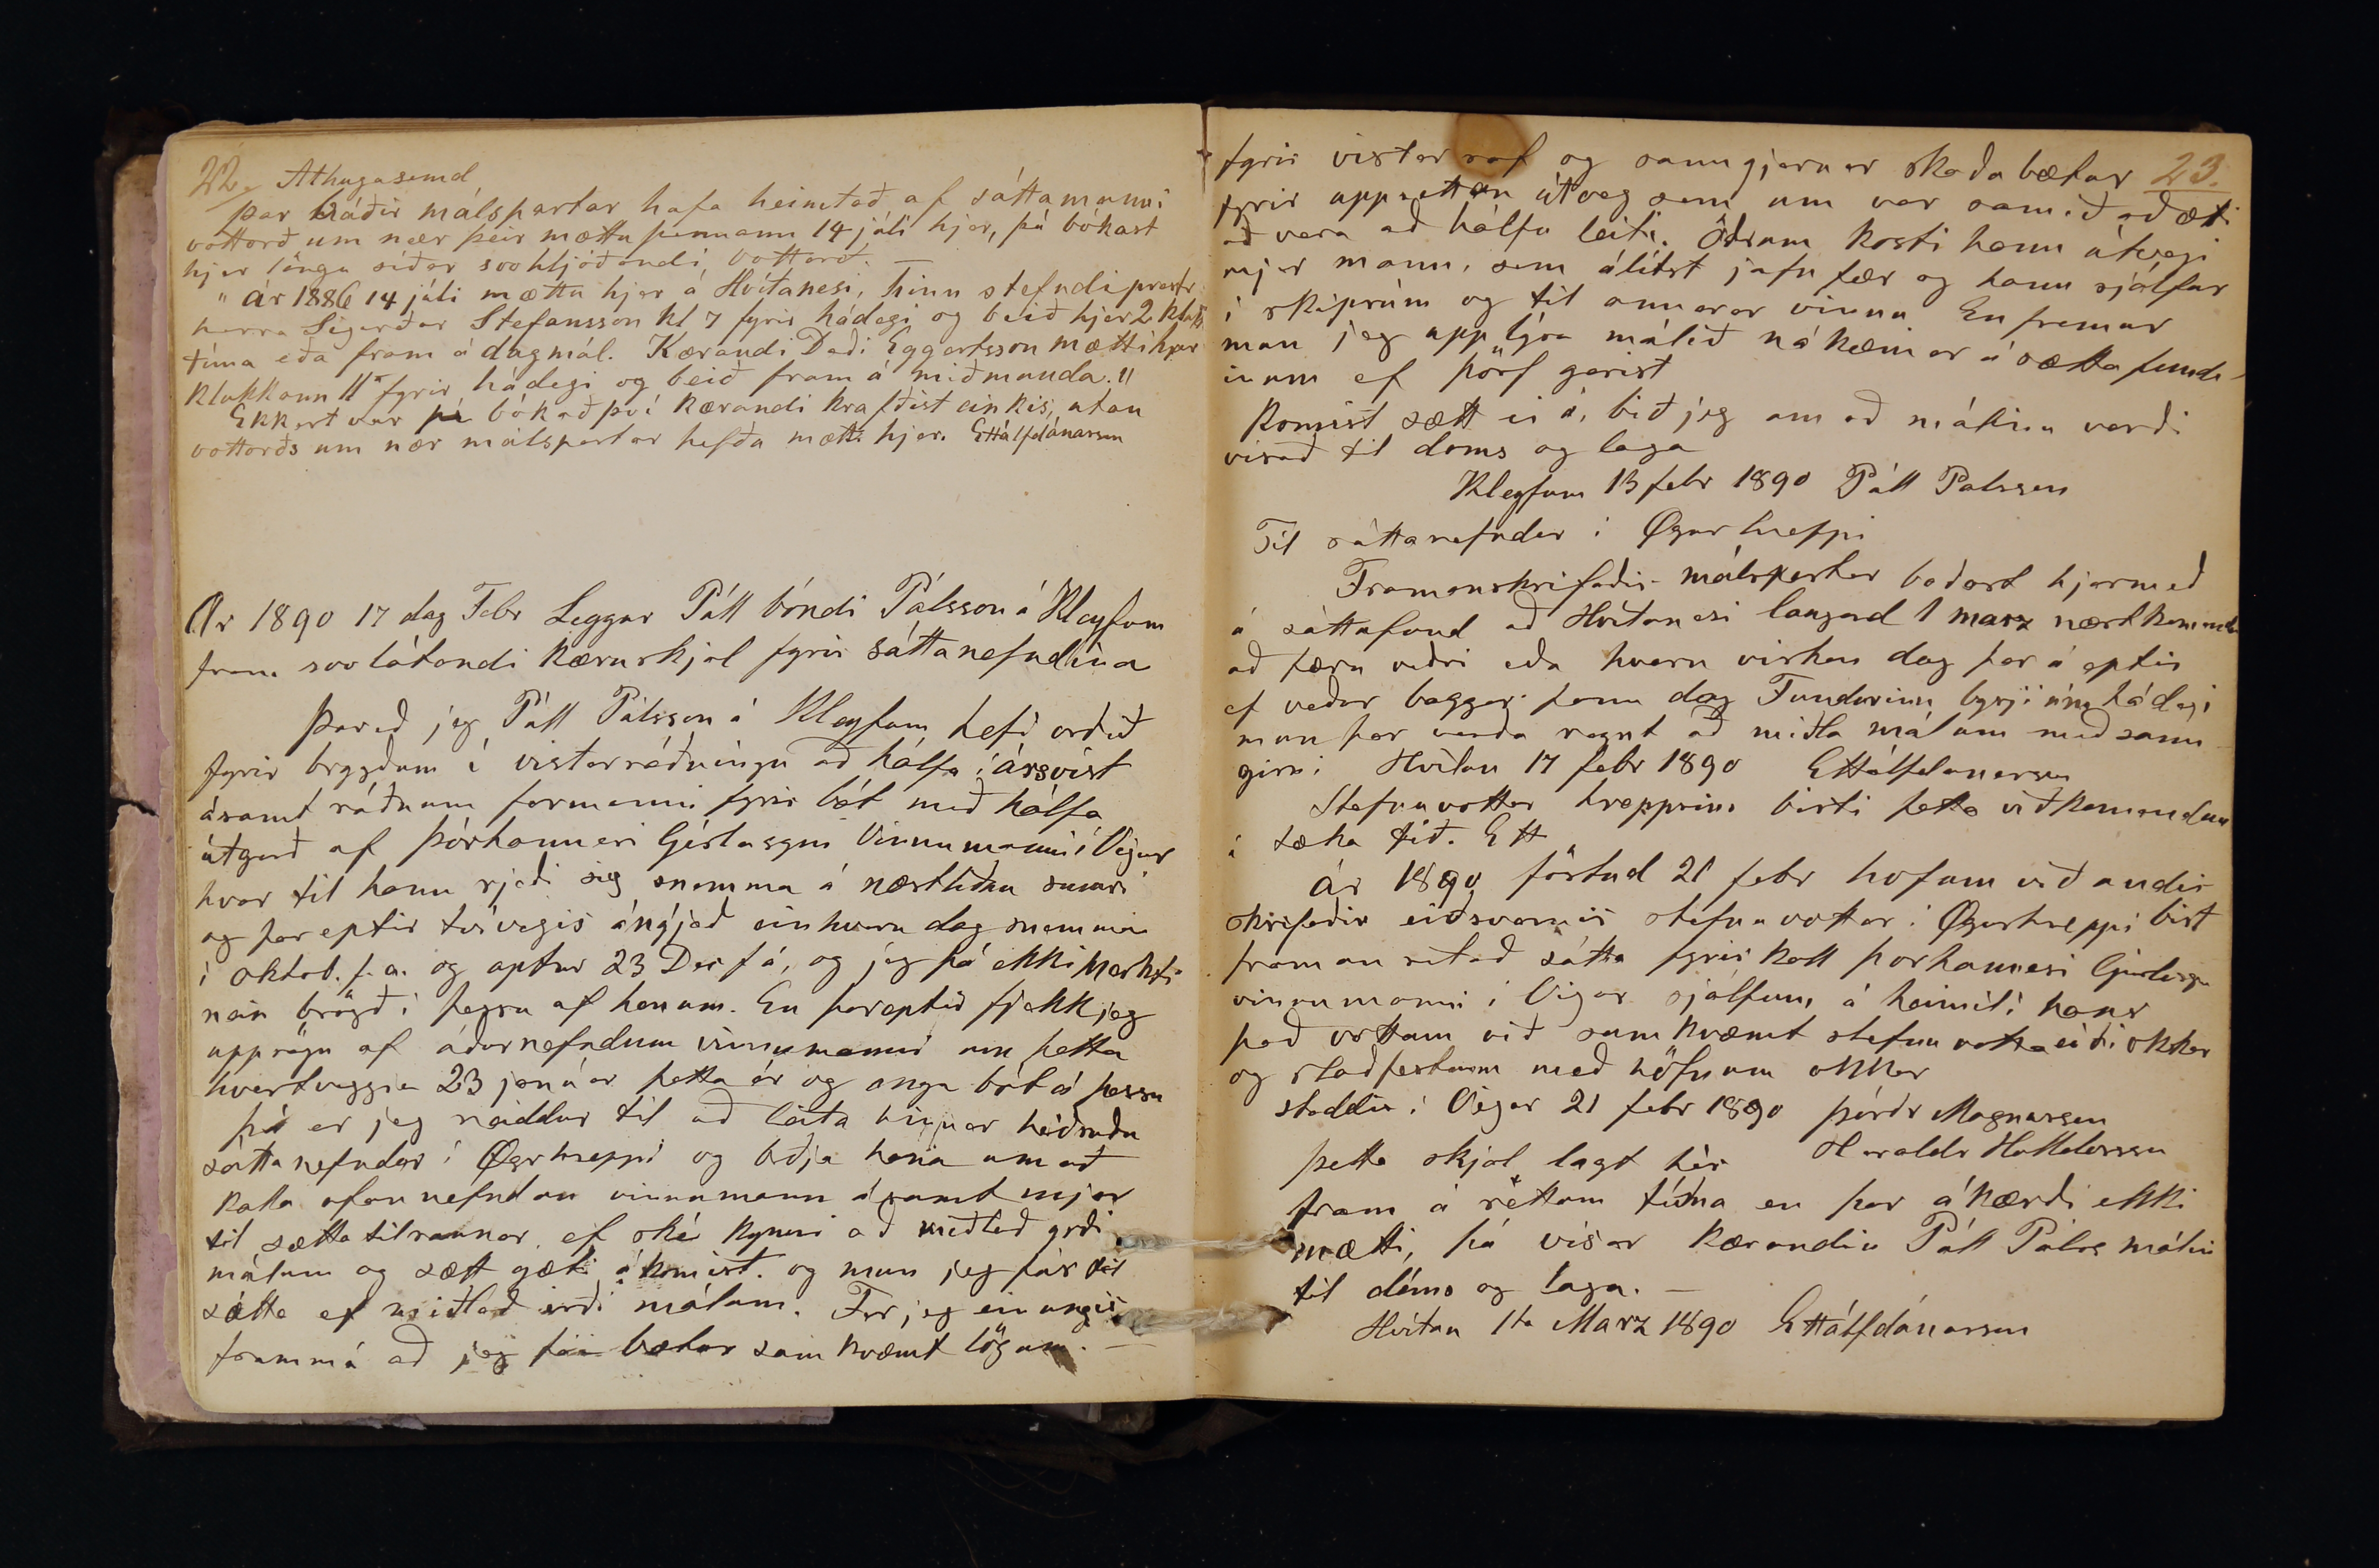 22. Athugasemd
Þar báðir málspartar hafa heimtað af sáttamanni
vottorð um nær þeir mættu þennann 14 júli hjer, þá bókast
hjer löngu síðar svohljóðandi vottorð. —
"Ár 1886 14 júli mættu hjer á Hvítanesi, hinn stefndi prestr
herra Sigurður Stefansson kl 7 fyrir hádegi og beið hjer 2 klukk
tíma eða fram á dagmál. Kærandi Daði Eggertsson mætti hjer
klukkann 11 fyrir hádegi og beið fram á miðmunda."
Ekkert var þá bókað því kærandi krafðist einkis, utan
vottorðs um nær málspartar hefðu mætt hjer. EHálfdánarson
Ár 1890 17 dag Febr Leggur Páll bóndi Pálsson á Kleyfum
fram svo látandi kæruskjal fyrir sáttanefndina
Þareð jeg Páll Pálsson á Kleyfum hefi orðið
fyrir brygðum í vistarráðningu að hálfu í ársvist
ásamt ráðnum formanni fyrir bát með hálfa
útgerð af Þórhanneri Gíslasyni Vinnumanni í Vigur
hvar til hann rjeði sig snemma á næstliðnu sumri
og þar eptir tvívegis ángjað einhvern dag snemma
í oktob. f. a. og aptur 23 Des f á, og jeg þá ekki merkti
nein brögð í þessu af honum. En þareptir fjekk jeg
uppsögn af áðurnefndum vinnumanni um þetta
hvertveggja 23 janúar þetta ár og enga bót á þessu
þá er jeg neiddur til að leita hinnar heiðruðu
sáttanefndar í Ögurhreppi og biðja hana um að
kalla ofannefndan vinnumann ásamt mjer
til sættatilraunar, ef ské kynni að miðlað yrði
málum og sætt gæti ákomist. og mun jeg fús til
sátta ef miðlað irði málum. Fer jeg einungis
frammá að jeg fái bætur samkvæmt lögum. —
23.
fyrir vistarrof og sanngjarnar skaðabætur
fyrir uppsettan útveg sem um var samið að ætti
að vera að hálfu leiti. Öðrum kosti hann útvegi
mjer mann, sem álítst jafn fær og hann sjálfur
í skiprúm og til annarar vinnu En fremur
mun jeg upplýsa málið nákæmar á sættafundi-
inum ef þörf gerist
Komist sætt ei á, bið jeg um að málinu verði
vísað til doms og laga
Kleyfum 13 febr 1890 Páll Palsson
Til sáttanefndar í Øgurhreppi
Framanskrifaðir málspartar boðast hjermeð
á sáttafund að Hvítanesi laugard 1 marz næstkomandi
að færu veðri eða hvern virkan dag þar á eptir
ef veður baggar þenn dag Fundurinn byrji um hádegi
mun þar verða reynt að miðla málum með sann
girni Hvítan 17 febr 1890 EHálfdanarson
Stefnuvottar hreppsins birti þetta viðkomendum
í tæka tíð. EH
Ár 1890 föstud 21 febr hofum við undir
skrifaðir eiðsvarnir stefnuvottar í Øgurhreppi birt
framan ritað sátta fyrirkall Þorhannesi Gíslasyni
vinnumanni í Vigur sjálfum á heimili hans
það vottum við samkvæmt stefnuvottaeiði okkar
og staðfestum með nöfnum okkar
staddir í Vigur 21 febr 1890 Þórðr Magnusson
Haraldr Halldorsson
Þetta skjal lagt hér
fram á réttum tíma en þar ákærði ekki
mætti, þá vísar kærandin Páll Pálss málin
til dóms og laga. —
Hvítan 1ta Marz 1890 EHálfdánarson